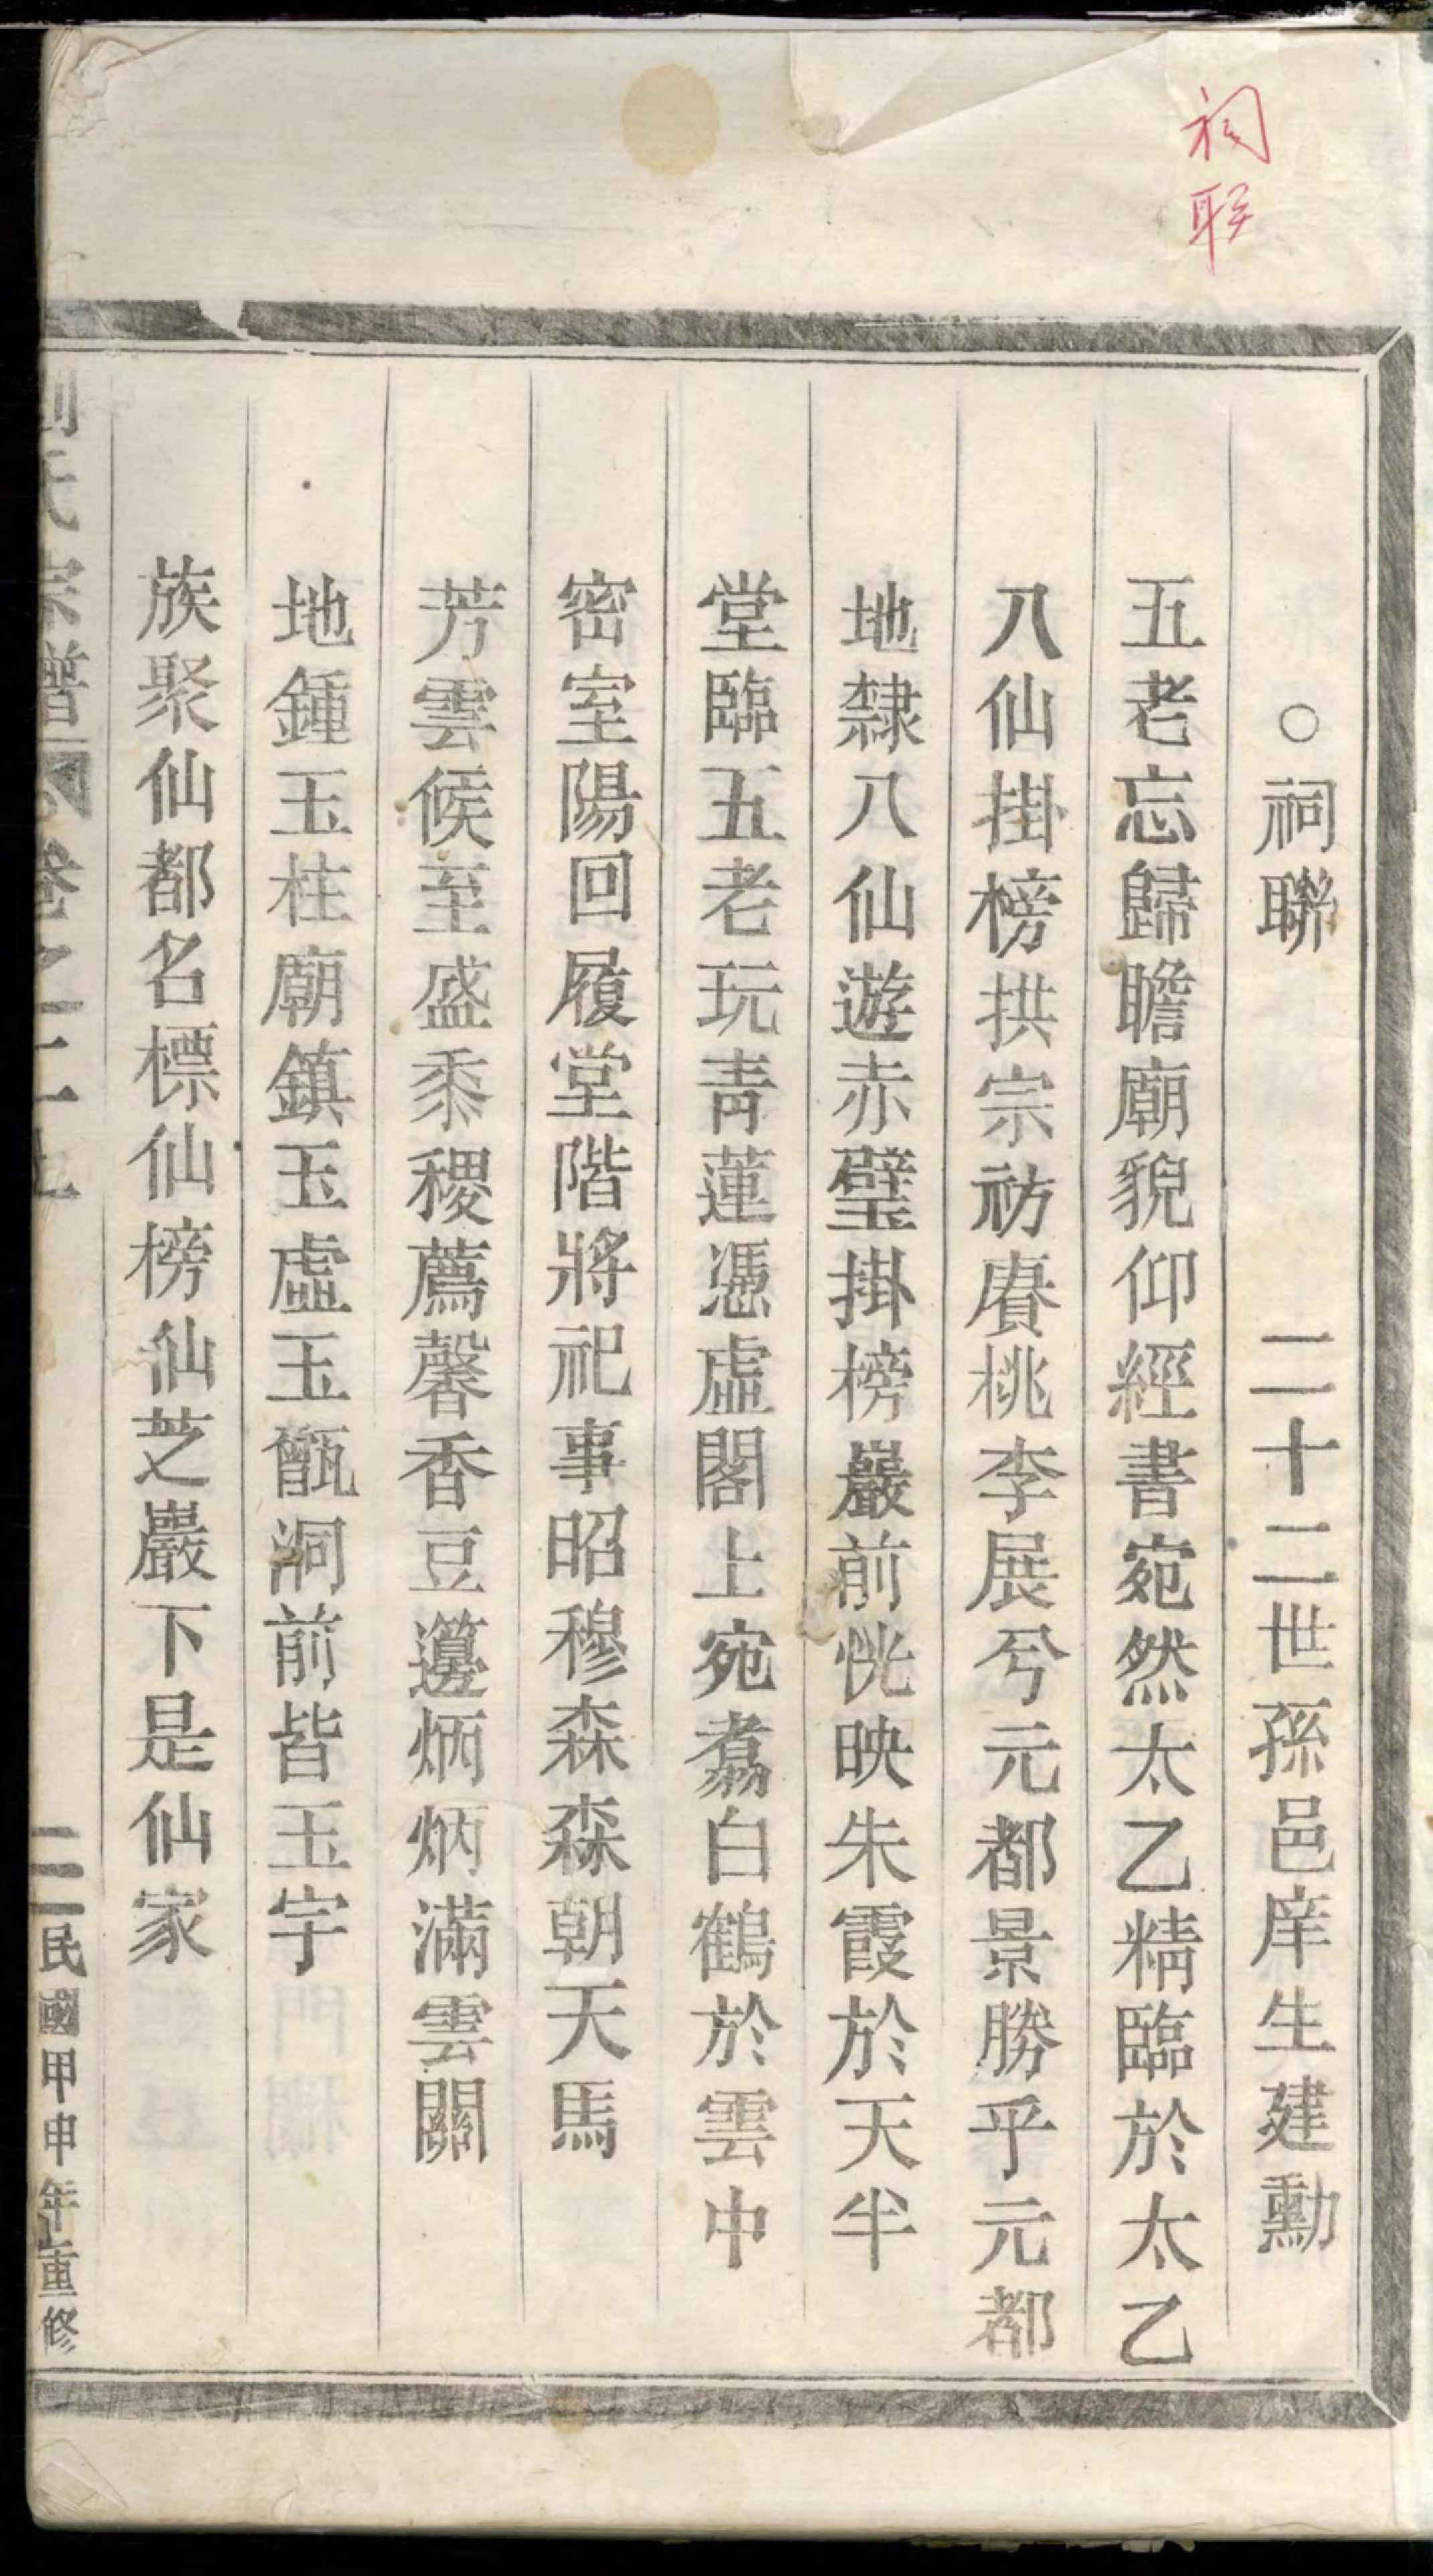 祠联
○祠聯　二十二世孫邑庠生建勳
五老忘歸瞻廟貌仰經書宛然太乙精臨於太乙
八仙掛榜拱宗祊賡桃李展兮元都景勝乎元都
地隸八仙遊赤壁掛榜巖前恍映朱霞於天半
堂臨五老玩青蓮憑虛閣上宛翥白鶴於雲中
密室陽回履堂階將祀事昭穆森森朝天馬
芳雲候至盛黍稷薦馨香豆籩炳炳滿雲關
地鍾玉柱廟鎮玉虛玉甑洞前皆玉宇
族聚仙都名標仙榜仙芝巖下是仙家
氏宗譜 卷之二上 二 民國甲申年重修